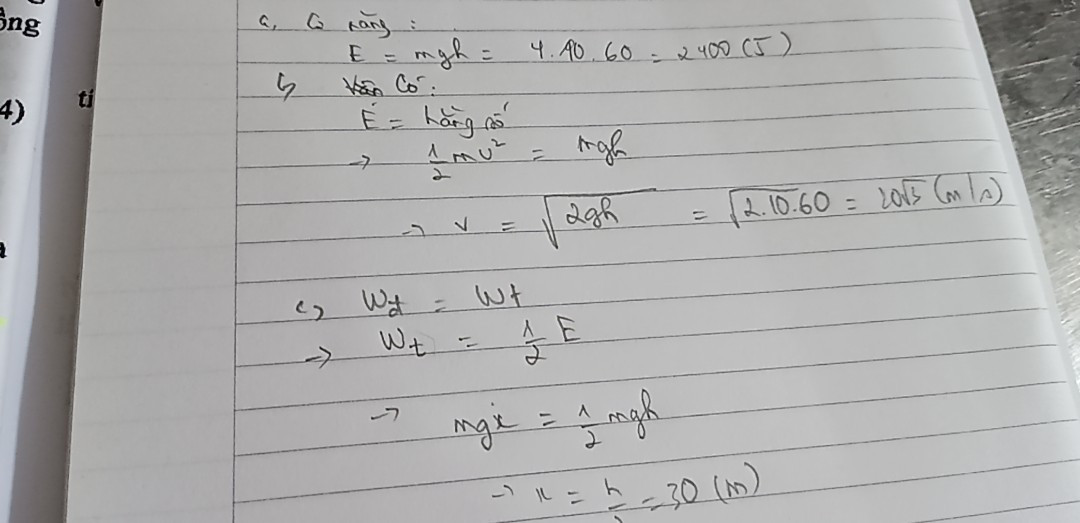 ông
4)
ti
a, Cơ năng :
E = mgh = 4.10.60 = 2400 (J)
b, Vận Có :
E = hằng số
→ 1/2 mv² = mgh
→ v = √2gh = √2.10.60 = 20√3 (m/s)
c, Wđ = Wt
→ Wt = 1/2 E
→ mgx = 1/2 mgh
→ x = h/2 = 30 (m)